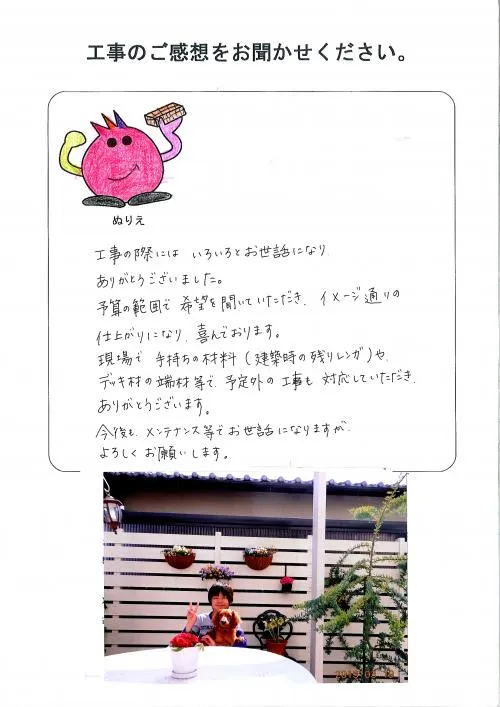 工事のご感想をお聞かせください。
ぬりえ
工事の際には いろいろとお世話になり
ありがとうございました。
予算の範囲で 希望を聞いていただき、イメージ通りの
仕上がりになり、喜んでおります。
現場で 手持ちの材料（建築時の残りレンガ）や、
デッキ材の端材等で、予定外の工事も 対応していただき、
ありがとうございます。
今後も、メンテナンス等でお世話になりますが、
よろしくお願いします。